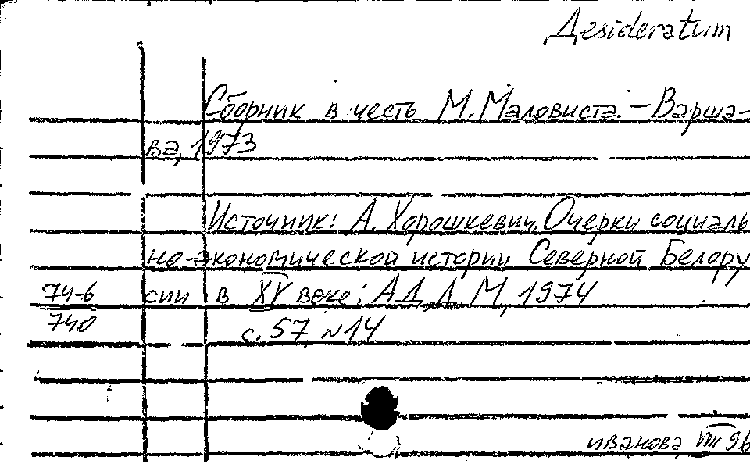 Desideratum
Сборник в честь М. Маловиста. – Варша-
ва, 1973
Источник: А. Хорошкевич, Очерки социаль
но-экономической истории Северной Белору
74-6 сии в XV веке; АД, М, 1974
740 с. 57, N 14
Иванова, VIII 96